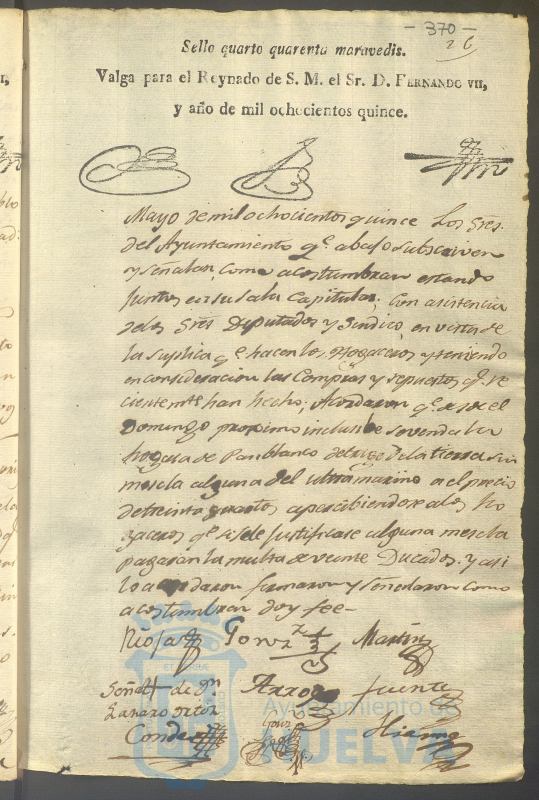 - 370 -
26
Sello quarto quarenta maravedis.
Valga para el Reynado de S. M. el Sr. D. FERNANDO VII,
y año de mil ochocientos quince.
Mayo de mil ochocientos quince Los Sres.
del Ayuntamiento qe. abajo subscriven
y señalan, como acostumbran estando
juntos en su sala Capitular, con asistencia
de los Sres Diputados y Sindico, en vista de
la suplica qe. hacen los Hogaceros y teniendo
en consideracion las Compras y repuestos qe. re
cientemte. han hecho; Acordaron qe. desde el
Domingo proximo inclusibe se venda la
hogaza de Pan blanco de trigo de la tierra sin
mescla alguna del ultramarino a el precio
de treinta quartos apercibiendose a los Ho
gaceros qe. si se le justificase alguna mescla
pagaran la multa de veinte Ducados. y asi
lo acordaron firmaron y señalaron como
acostumbran doy fee-
Rioja Gonz Martin
Señal + de Dn Arroyo fuente
Lazaro
Conde
Ayuntamiento de
HUELVA